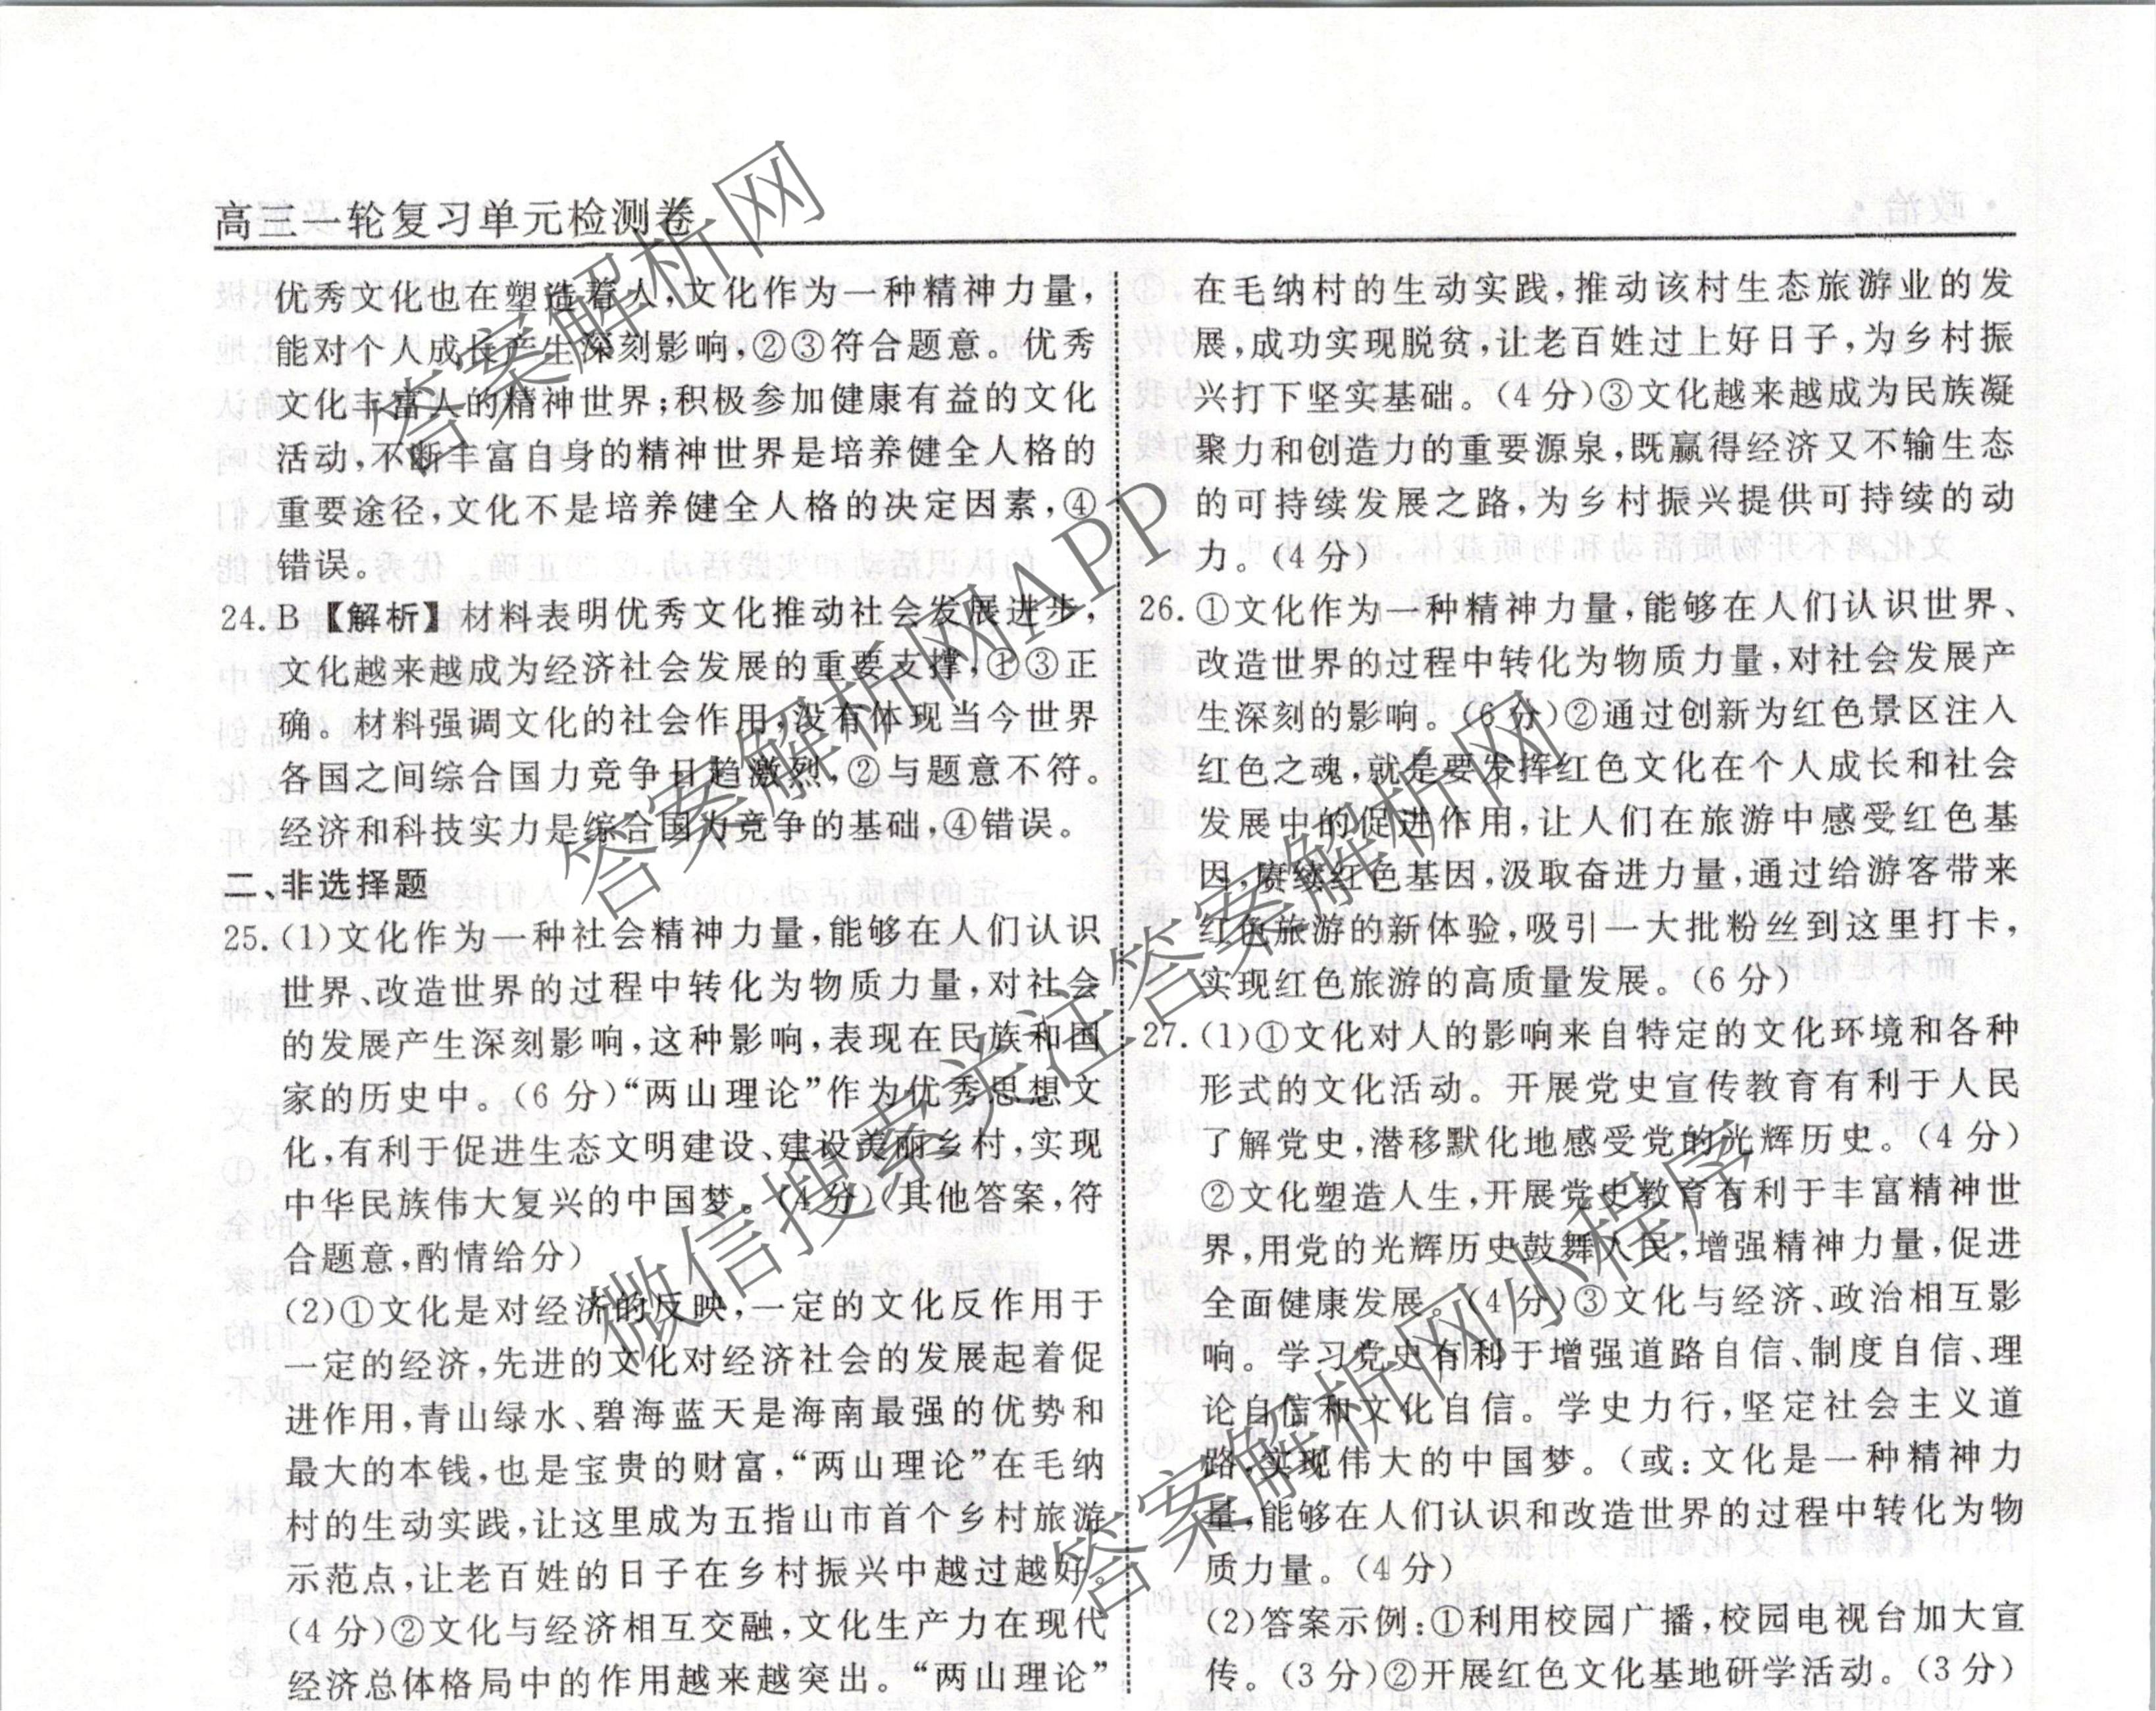 高三一轮复习单元检测卷
优秀文化也在塑造着人,文化作为一种精神力量,
能对个人成长产生深刻影响,②③符合题意。优秀
文化丰富人的精神世界;积极参加健康有益的文化
活动,不断丰富自身的精神世界是培养健全人格的
重要途径,文化不是培养健全人格的决定因素,④
错误。
24. B 【解析】材料表明优秀文化推动社会发展进步,
文化越来越成为经济社会发展的重要支撑,①③正
确。材料强调文化的社会作用,没有体现当今世界
各国之间综合国力竞争日趋激烈,②与题意不符。
经济和科技实力是综合国力竞争的基础,④错误。
二、非选择题
25. (1)文化作为一种社会精神力量,能够在人们认识
世界、改造世界的过程中转化为物质力量,对社会
的发展产生深刻影响,这种影响,表现在民族和国
家的历史中。(6 分)“两山理论”作为优秀思想文
化,有利于促进生态文明建设、建设美丽乡村,实现
中华民族伟大复兴的中国梦。(4 分)(其他答案,符
合题意,酌情给分)
(2)①文化是对经济的反映,一定的文化反作用于
一定的经济,先进的文化对经济社会的发展起着促
进作用,青山绿水、碧海蓝天是海南最强的优势和
最大的本钱,也是宝贵的财富,“两山理论”在毛纳
村的生动实践,让这里成为五指山市首个乡村旅游
示范点,让老百姓的日子在乡村振兴中越过越好。
(4 分)②文化与经济相互交融,文化生产力在现代
经济总体格局中的作用越来越突出。“两山理论”
在毛纳村的生动实践,推动该村生态旅游业的发
展,成功实现脱贫,让老百姓过上好日子,为乡村振
兴打下坚实基础。(4 分)③文化越来越成为民族凝
聚力和创造力的重要源泉,既赢得经济又不输生态
的可持续发展之路,为乡村振兴提供可持续的动
力。(4 分)
26. ①文化作为一种精神力量,能够在人们认识世界、
改造世界的过程中转化为物质力量,对社会发展产
生深刻的影响。(6 分)②通过创新为红色景区注入
红色之魂,就是要发挥红色文化在个人成长和社会
发展中的促进作用,让人们在旅游中感受红色基
因,赓续红色基因,汲取奋进力量,通过给游客带来
红色旅游的新体验,吸引一大批粉丝到这里打卡,
实现红色旅游的高质量发展。(6 分)
27. (1)①文化对人的影响来自特定的文化环境和各种
形式的文化活动。开展党史宣传教育有利于人民
了解党史,潜移默化地感受党的光辉历史。(4 分)
②文化塑造人生,开展党史教育有利于丰富精神世
界,用党的光辉历史鼓舞人民,增强精神力量,促进
全面健康发展。(4 分)③文化与经济、政治相互影
响。学习党史有利于增强道路自信、制度自信、理
论自信和文化自信。学史力行,坚定社会主义道
路,实现伟大的中国梦。(或:文化是一种精神力
量,能够在人们认识和改造世界的过程中转化为物
质力量。(4 分)
(2)答案示例:①利用校园广播,校园电视台加大宣
传。(3 分)②开展红色文化基地研学活动。(3 分)
答案解析网
答案解析网APP
微信搜索关注答案解析网
答案解析网小程序